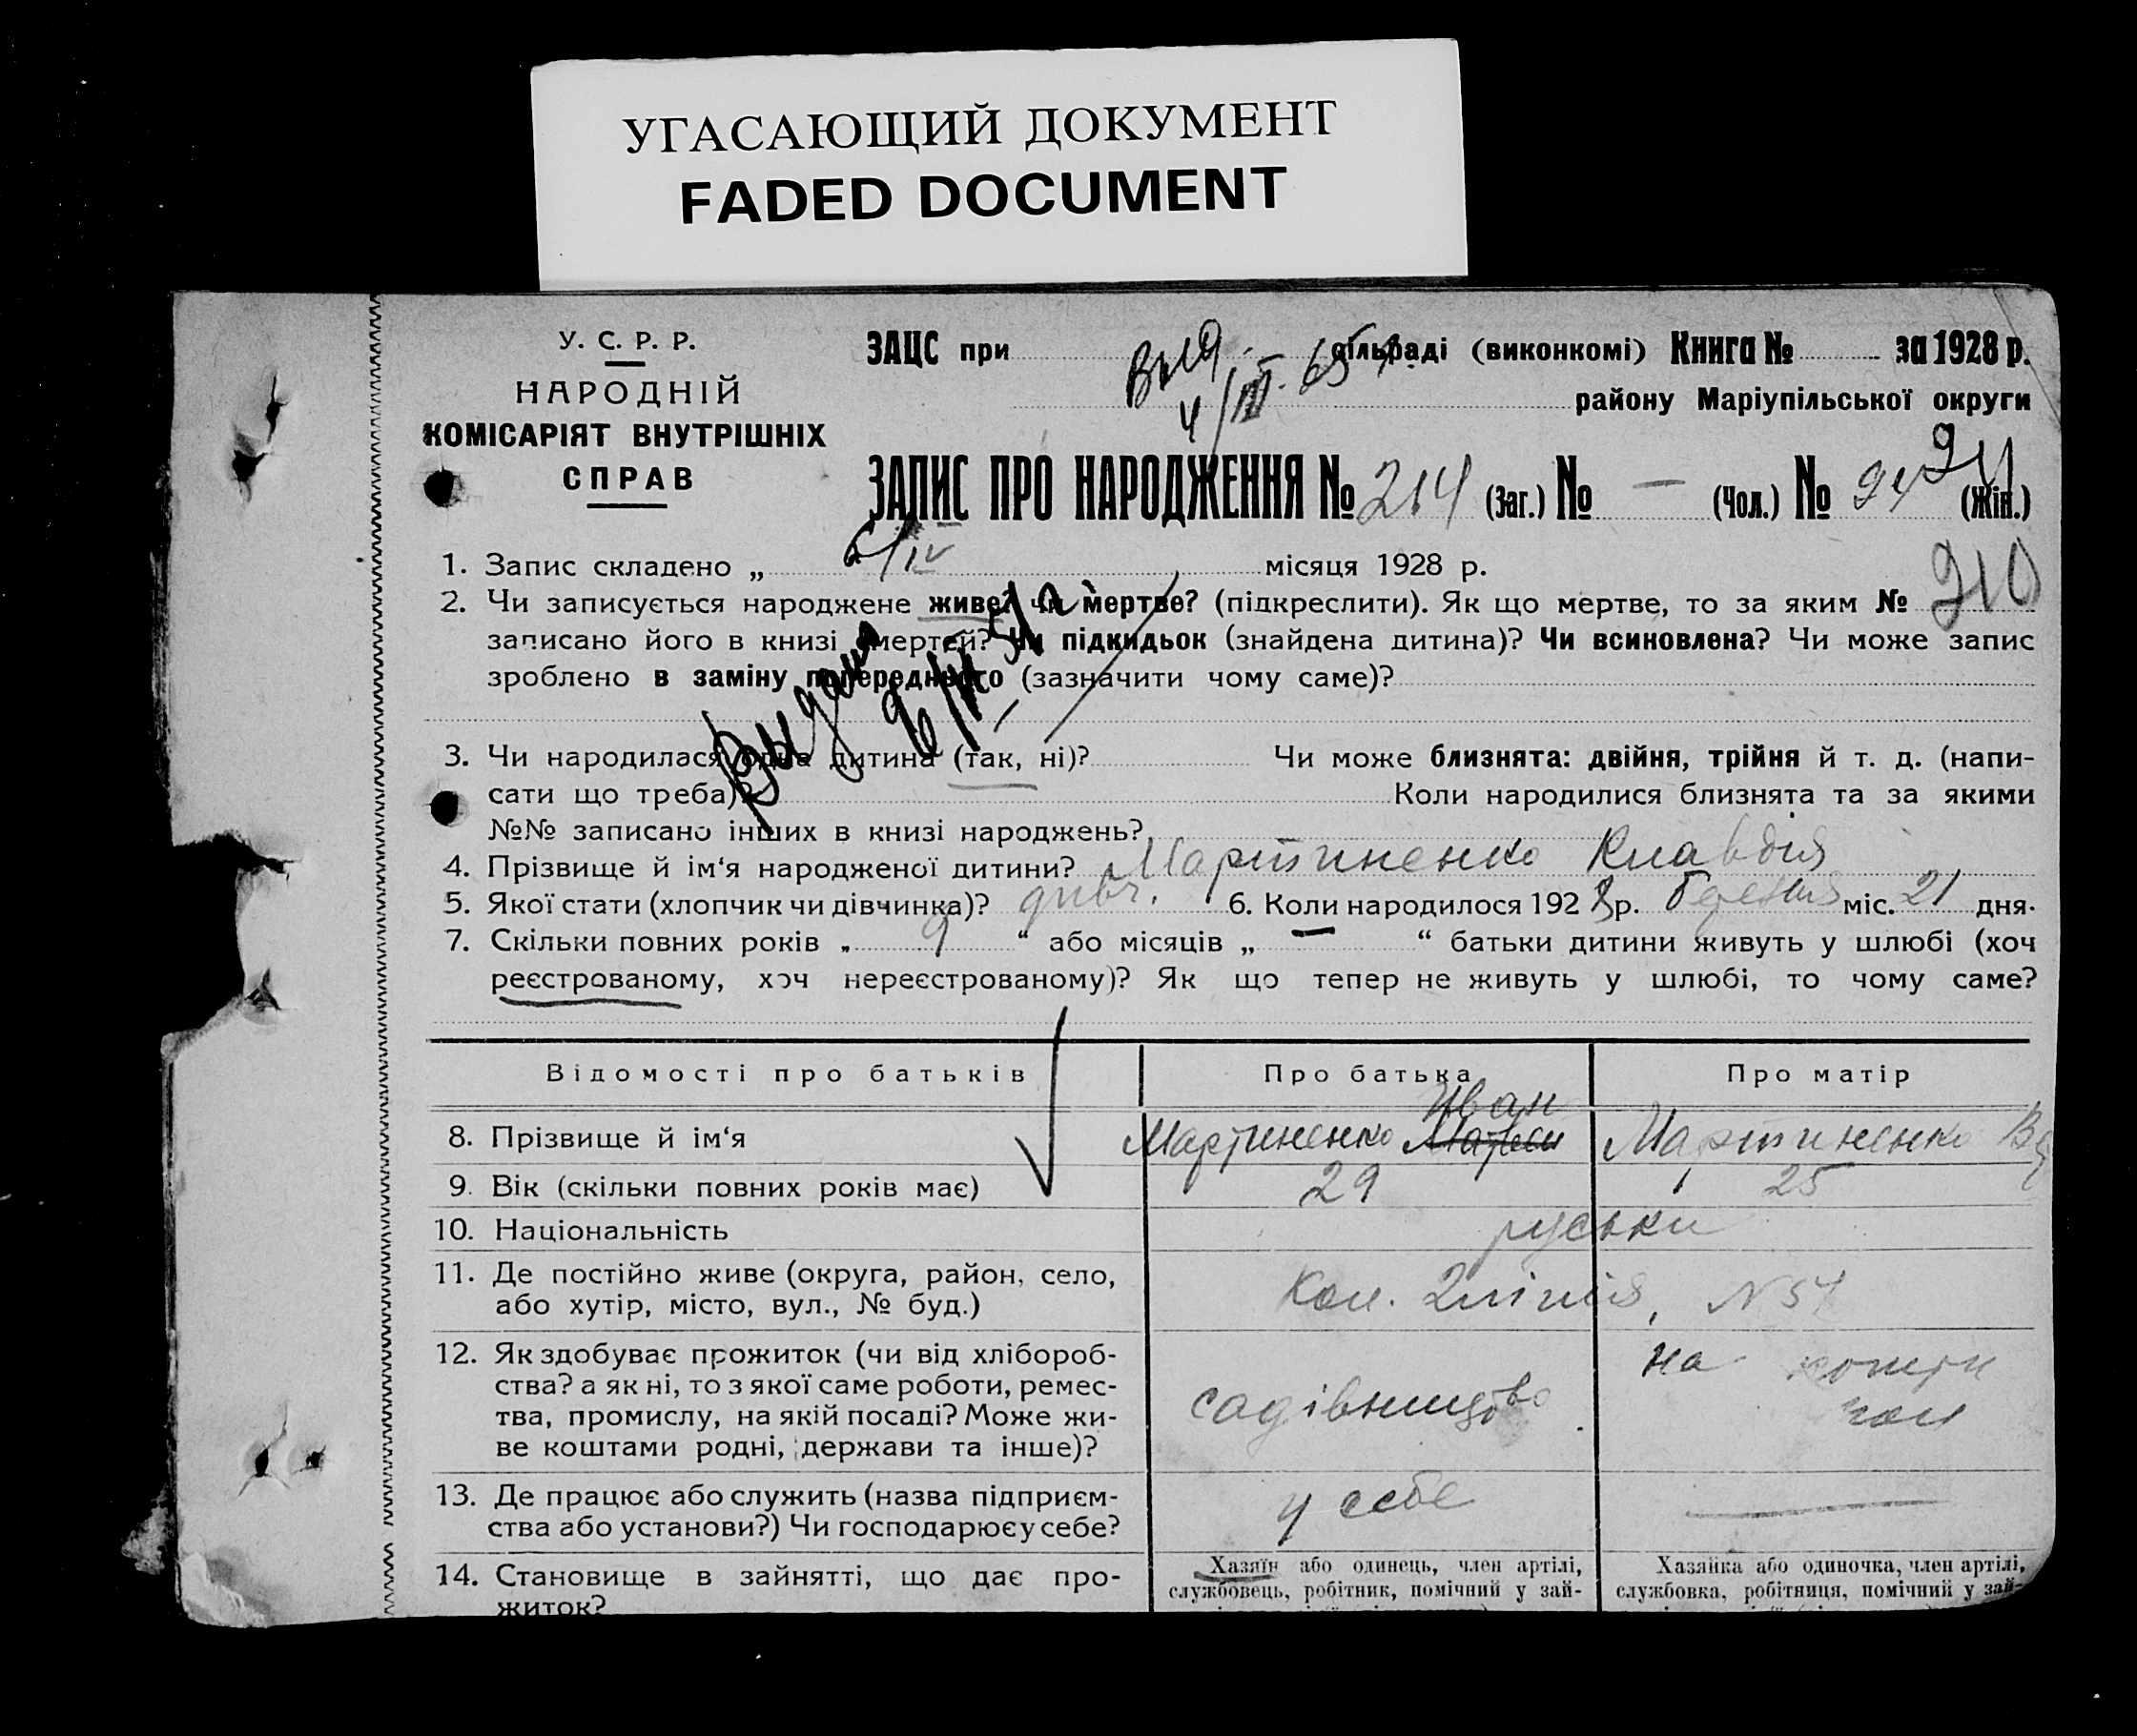 УГАСАЮЩИЙ ДОКУМЕНТ
FADED DOCUMENT
У. С. Р. Р.
НАРОДНІЙ
КОМІСАРІЯТ ВНУТРІШНІХ
СПРАВ
ЗАЦС при сільраді (виконкомі) Книга № за 1928 р.
4/III 65
району Маріупільської округи
ЗАПИС ПРО НАРОДЖЕННЯ № 214 (Заг.) № — (Чол.) № 94 94 (Жін.)
1. Запис складено „ 6/IV місяця 1928 р.
2. Чи записується народжене живе? чи мертве? (підкреслити). Як що мертве, то за яким № 210
записано його в книзі смертей? Чи підкидьок (знайдена дитина)? Чи всиновлена? Чи може запис
зроблено в заміну попереднього (зазначити чому саме)?
Выдано
3. Чи народилася одна дитина (так, ні)? Чи може близнята: двійня, трійня й т. д. (напи-
сати що треба)? Коли народилися близнята та за якими
№№ записано інших в книзі народжень?
4. Прізвище й ім‘я народженої дитини? Мартиненко Клавдія
5. Якої стати (хлопчик чи дівчинка)? дивч. 6. Коли народилося 192 8 р. березня міс. 21 дня.
7. Скільки повних років „ 9 “ або місяців „ — “ батьки дитини живуть у шлюбі (хоч
реєстрованому, хоч нереєстрованому)? Як що тепер не живуть у шлюбі, то чому саме?
Відомості про батьків Про батька Про матір
Иван
8. Прізвище й ім‘я Мартиненко Матвей Мартиненко
9. Вік (скільки повних років має) 29 25
10. Національність руськи
11. Де постійно живе (округа, район, село,
або хутір, місто, вул., № буд.) Кол. 2 лінія, N 54
12. Як здобуває прожиток (чи від хлібороб-
ства? а як ні, то з якої саме роботи, ремес-
тва, промислу, на якій посаді? Може жи-
ве коштами родні, держави та інше)?
садівництво
на кошти
чол
13. Де працює або служить (назва підприєм-
ства або установи?) Чи господарює у себе?
у себе —
14. Становище в зайнятті, що дає про-
житок?
Хазяїн або одинець, член артілі,
службовець, робітник, помічний у зай-
Хазяйка або одиночка, член артілі,
службовка, робітниця, помічний у зай-